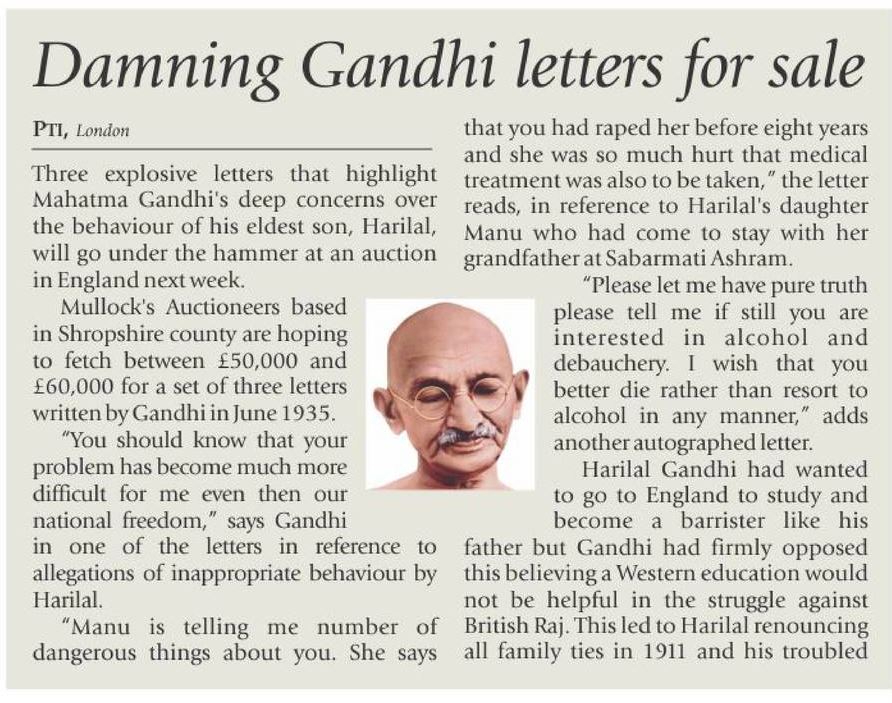 Damning Gandhi letters for sale
PTI, London
Three explosive letters that highlight
Mahatma Gandhi's deep concerns over
the behaviour of his eldest son, Harilal,
will go under the hammer at an auction
in England next week.
Mullock's Auctioneers based
in Shropshire county are hoping
to fetch between £50,000 and
£60,000 for a set of three letters
written by Gandhi in June 1935.
"You should know that your
problem has become much more
difficult for me even then our
national freedom," says Gandhi
in one of the letters in reference to
allegations of inappropriate behaviour by
Harilal.
"Manu is telling me number of
dangerous things about you. She says
that you had raped her before eight years
and she was so much hurt that medical
treatment was also to be taken," the letter
reads, in reference to Harilal's daughter
Manu who had come to stay with her
grandfather at Sabarmati Ashram.
"Please let me have pure truth
please tell me if still you are
interested in alcohol and
debauchery. I wish that you
better die rather than resort to
alcohol in any manner," adds
another autographed letter.
Harilal Gandhi had wanted
to go to England to study and
become a barrister like his
father but Gandhi had firmly opposed
this believing a Western education would
not be helpful in the struggle against
British Raj. This led to Harilal renouncing
all family ties in 1911 and his troubled